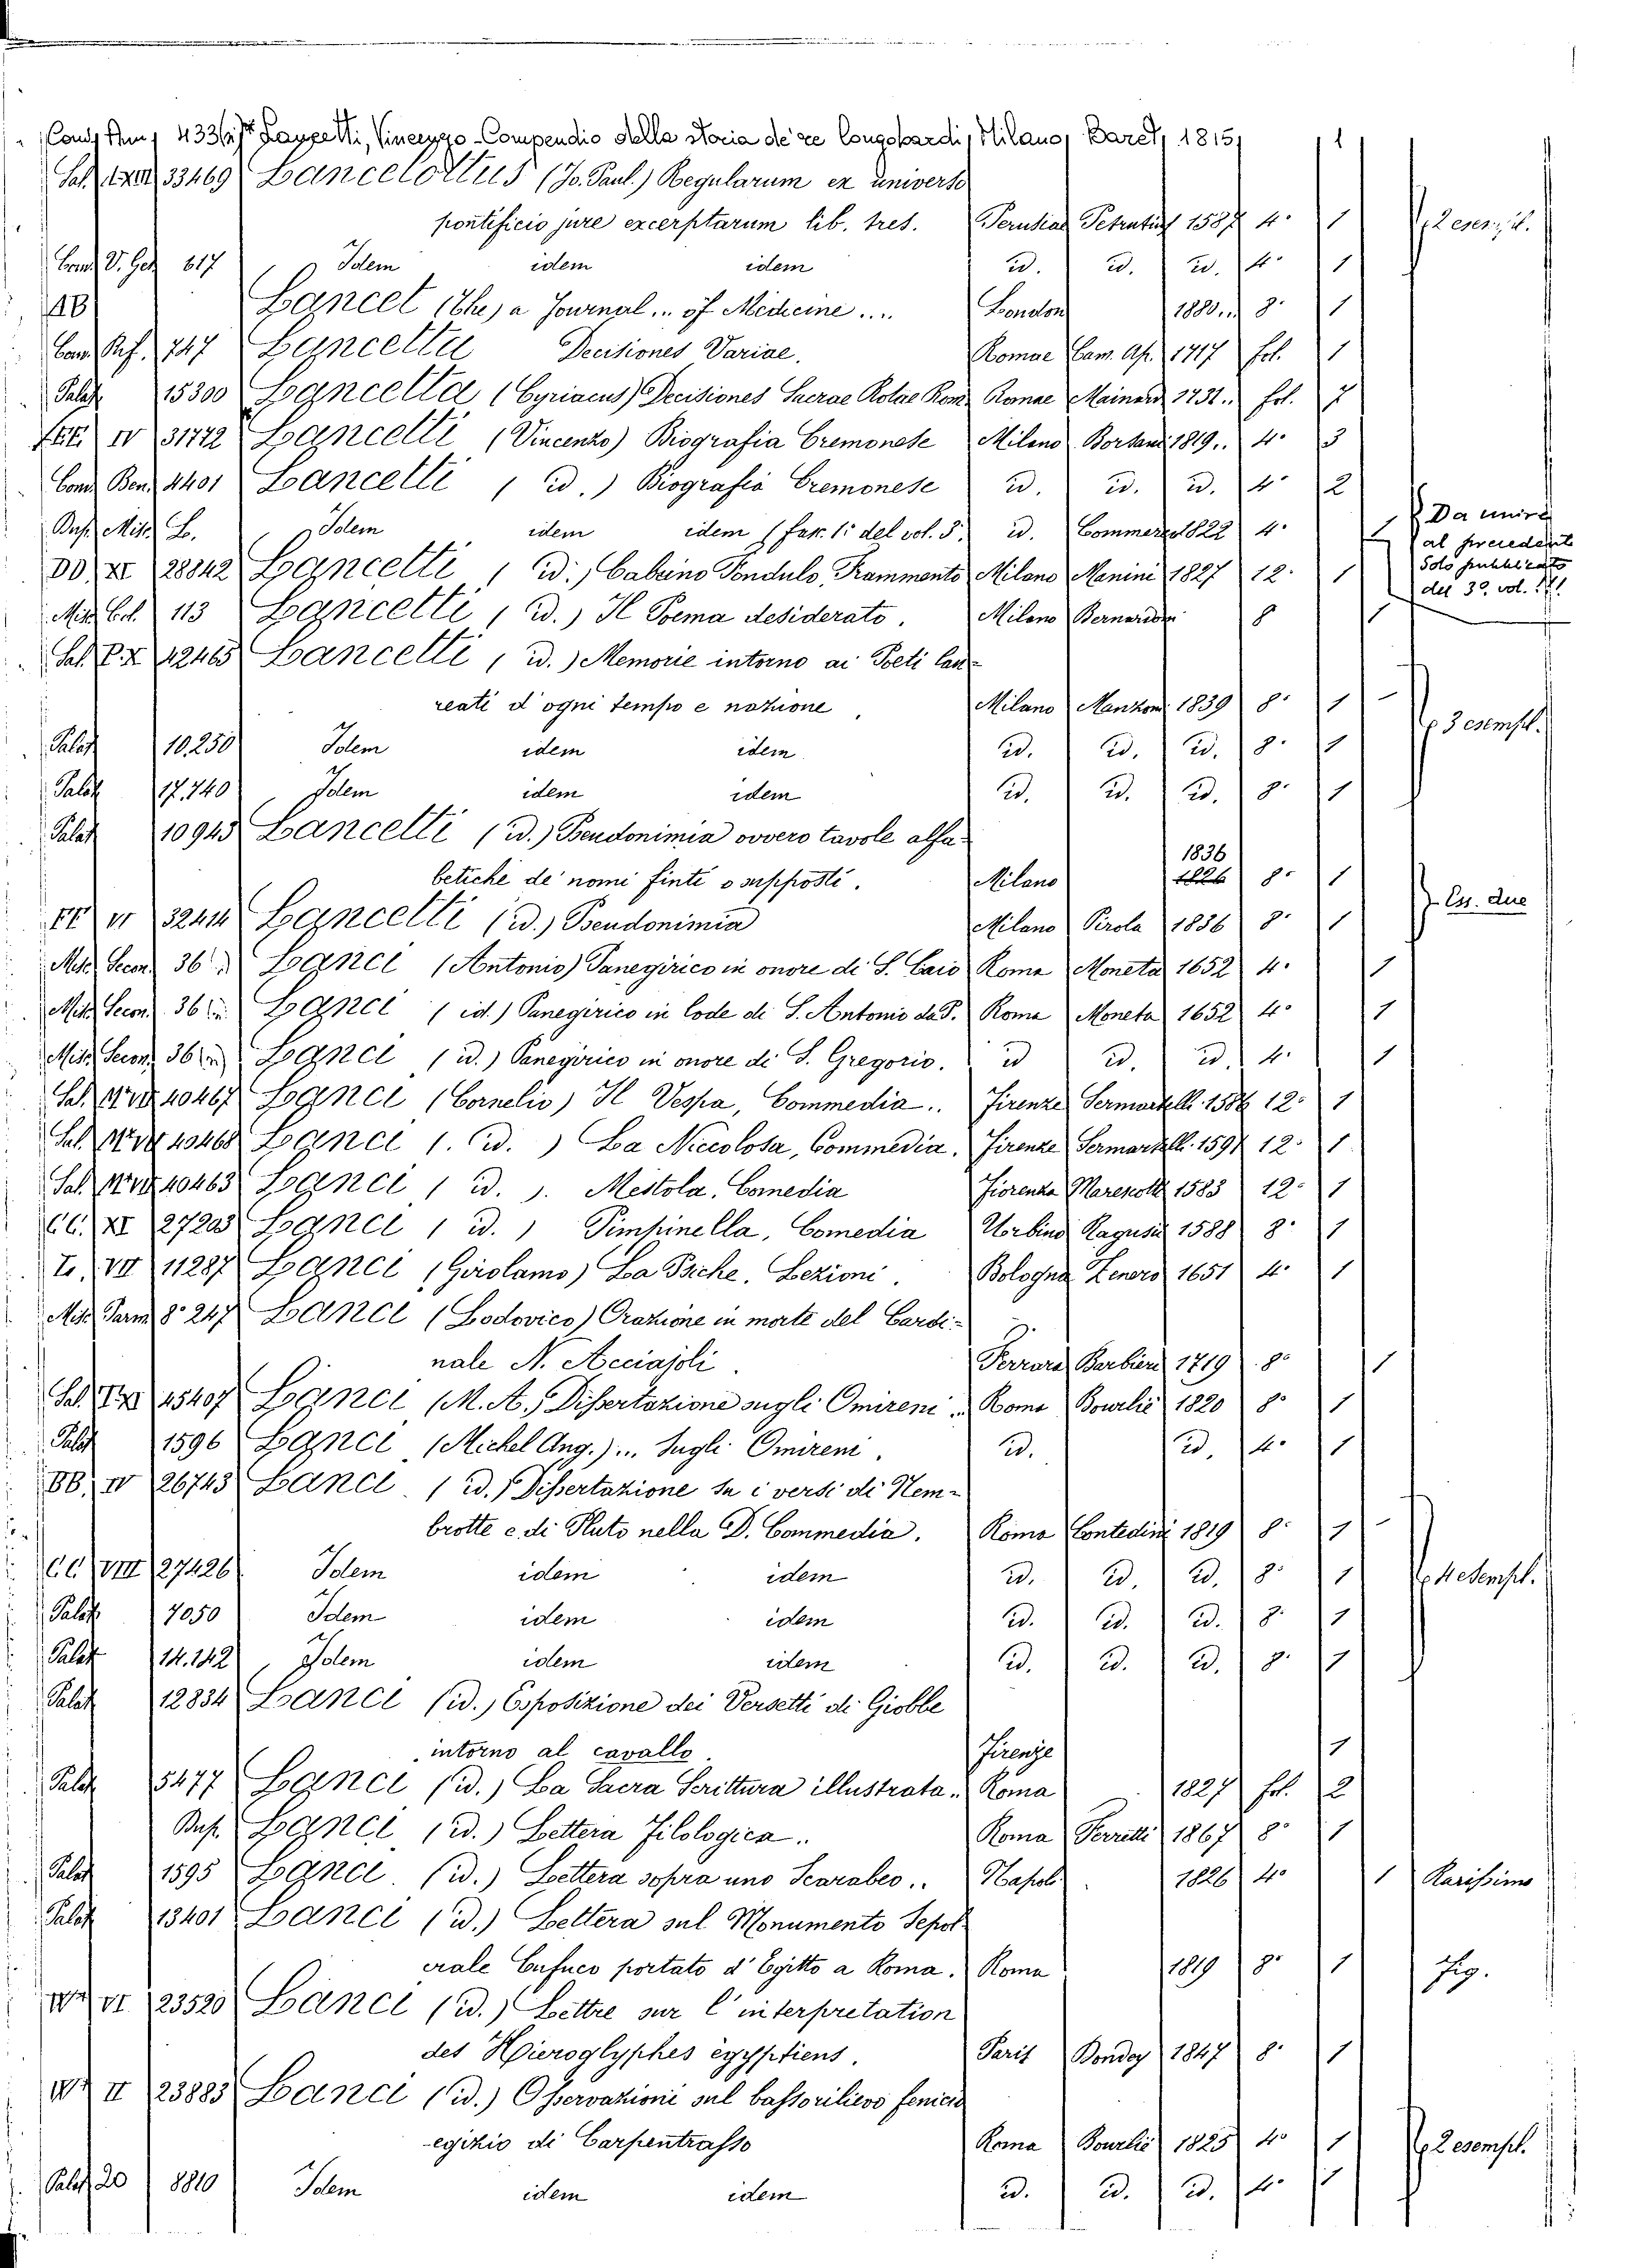 Lanzetti, Vincenzo - Compendio della storia de' re Longobardi, Milano, 1815, 1
33469 Lancelottus (Jo. Paul.) Regularum ex universo
pontificio jure excerptarum lib. tres. Perusiae 1587 4° 1 2 esempl.
617 Idem idem idem id. id. id. 4° 1
Lancet (The) a Journal... of Medicine.... London 1880.. 8° 1
747 Lancetta Decisiones Variae. Romae Cam. Ap. 1717 fol. 1
Palat 15300 Lancetta (Cyriacus) Decisiones Sacrae Rotae Rom. Romae Mainard 1731.. fol. 7
IV 31772 Lancetti (Vincenzo) Biografia Cremonese Milano 1819.. 4° 3
4401 Lancetti (id.) Biografia Cremonese id. id. id. 4° 2
Busta Misc. L. Idem idem idem (fasc. 1° del vol. 3°) id. Commerc. 1822 4° 1 Da unire al precedente
Solo pubblicato del 3° vol.
DD. XI 28842 Lancetti (id.) Cabrino Fondulo, Frammento Milano Manini 1827 12° 1
113 Lancetti (id.) Il Poema desiderato. Milano Bernardoni 8
42465 Lancetti (id.) Memorie intorno ai Poeti lau-
reati d'ogni tempo e nazione Milano Manzoni 1839 8° 1 3 esempl.
Palat 10.250 Idem idem idem id. id. id. 8° 1
Palat 17.740 Idem idem idem id. id. id. 8° 1
Palat 10945 Lancetti (id.) Pseudonimia ovvero tavole alfa-
betiche de' nomi finti o supposti. Milano 1836 1826 8° 1 Es. due
VI 32414 Lancetti (id.) Pseudonimia Milano Pirola 1836 8° 1
36 Lanci (Antonio) Panegirico in onore di S. Caio Roma Moneta 1652 4° 1
36 Lanci (id.) Panegirico in lode di S. Antonio da P. Roma Moneta 1652 4° 1
36 Lanci (id.) Panegirico in onore di S. Gregorio. id id. id. 4° 1
40467 Lanci (Cornelio) Il Vespa, Commedia.. Firenze Sermartelli 1586 12° 1
40468 Lanci (id.) La Niccolosa, Commedia. Firenze Sermartelli 1591 12° 1
40463 Lanci (id.). Mestola, Comedia Fiorenza Marescotti 1583 12° 1
CC. XI 27203 Lanci (id.) Pimpinella, Comedia Urbino Ragusii 1588 8° 1
L. VII 11287 Lanci (Girolamo) La Psiche. Lezioni. Bologna Zenero 1651 4° 1
8° 247 Lanci (Lodovico) Orazione in morte del Cardi-
nale N. Acciajoli. Ferrara Barbieri 1719 8° 1
45407 Lanci (M. A.) Dissertazione sugli Omireni.. Roma Bourlié 1820 8° 1
Palat 1596 Lanci (Michel Ang.)... sugli Omireni. id. id. 4° 1
BB. IV 26743 Lanci (id.) Dissertazione su i versi di Nem-
brotte e di Pluto nella D. Commedia. Roma Contedini 1819 8° 1 4 esempl.
CC VIII 27426 Idem idem idem id. id. id. 8° 1
Palat 7050 Idem idem idem id. id. id. 8° 1
Palat 14.142 Idem idem idem id. id. id. 8° 1
Palat 12834 Lanci (id.) Esposizione dei Versetti di Giobbe
intorno al cavallo. Firenze 1
Palat 5477 Lanci (id.) La Sacra Scrittura illustrata.. Roma 1827 fol. 2
Bus. Lanci (id.) Lettera Filologica.. Roma Ferretti 1867 8° 1
Palat 1595 Lanci. (id.) Lettera sopra uno Scarabeo.. Napoli 1826 4° 1 Rarissimo
Palat 13401 Lanci (id.) Lettera sul Monumento Sepol-
crale Cufuco portato d'Egitto a Roma. Roma 1819 8° 1 Fig.
VI 23520 Lanci (id.) Lettre sur l'interpretation
des Hieroglyphes égyptiens. Paris Bondey 1847 8° 1
II 23883 Lanci (id.) Osservazioni sul bassorilievo fenicio
-egizio di Carpentrasso Roma Bourlié 1825 4° 1 2 esempl.
Palat 20 8810 Idem idem idem id. id. id. 4° 1